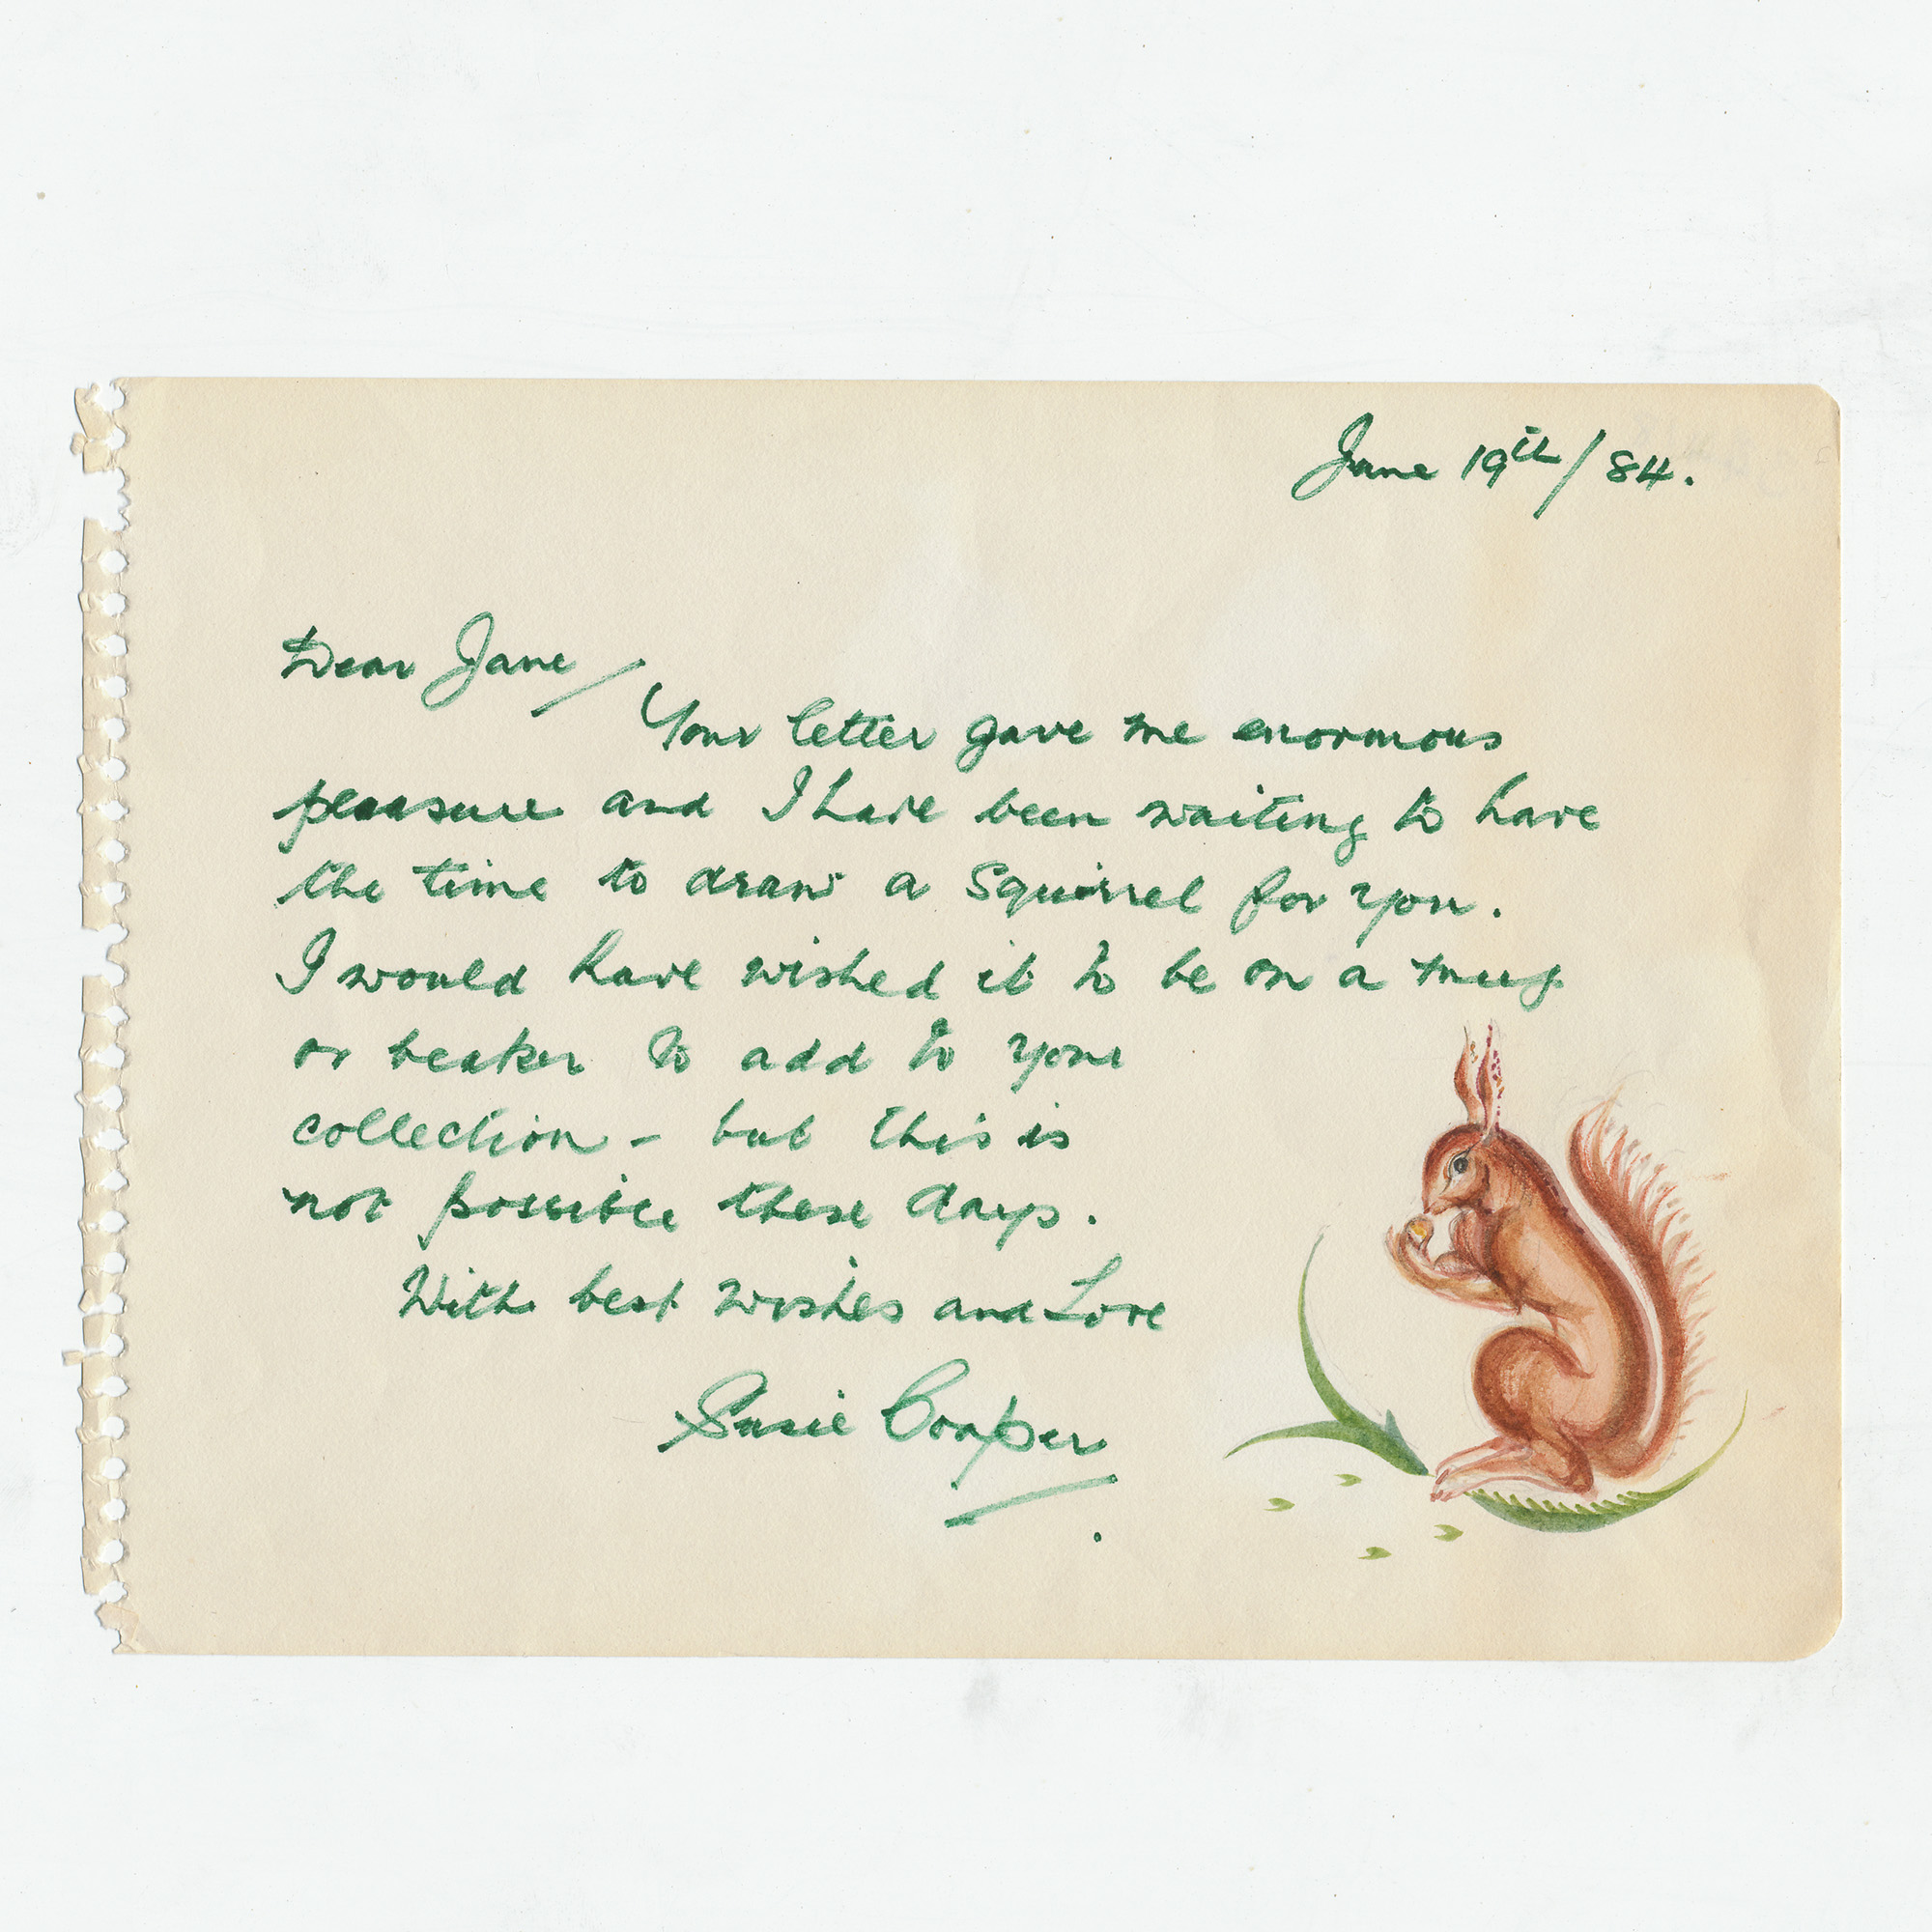 June 19th/84.
Dear Jane/
Your letter gave me enormous
pleasure and I have been waiting to have
the time to draw a Squirrel for you.
I would have wished it to be on a mug
or beaker to add to your
collection - but this is
not possible these days.
With best wishes and Love
Susie Cooper